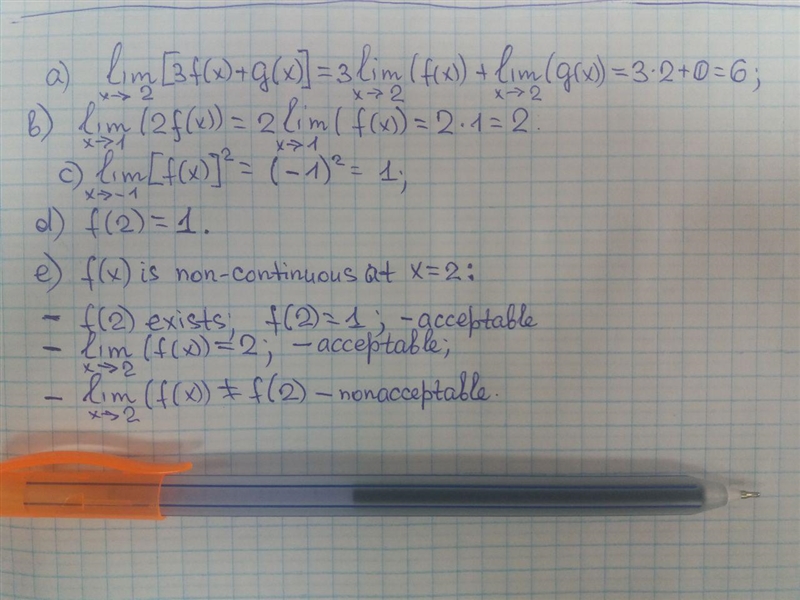 a) lim x→2 [3f(x)+g(x)]=3 lim x→2 (f(x))+lim x→2 (g(x))=3·2+0=6;
b) lim x→1 (2f(x))=2 lim x→1 (f(x))=2·1=2.
c) lim x→-1 [f(x)]²=(-1)²=1;
d) f(2)=1.
e) f(x) is non-continuous at x=2:
- f(2) exists; f(2)=1; -acceptable
- lim x→2 (f(x))=2; -acceptable;
- lim x→2 (f(x))≠f(2)-nonacceptable.